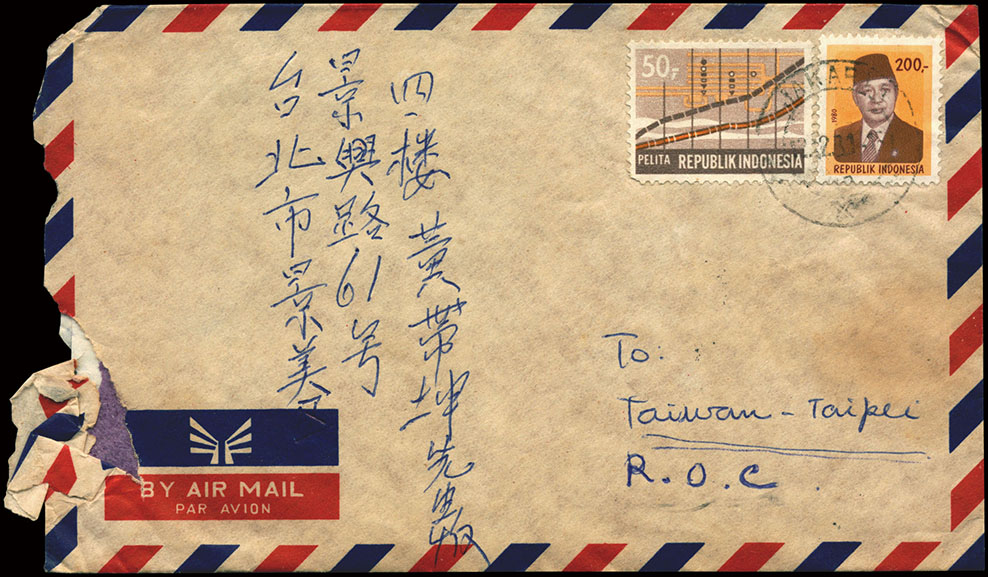 台北市景美区
景興路61号
四楼 黃坤先生收
50,-
PELITA REPUBLIK INDONESIA
200,-
1980
REPUBLIK INDONESIA
To.
Taiwan - Taipei
R.O.C.
BY AIR MAIL
PAR AVION